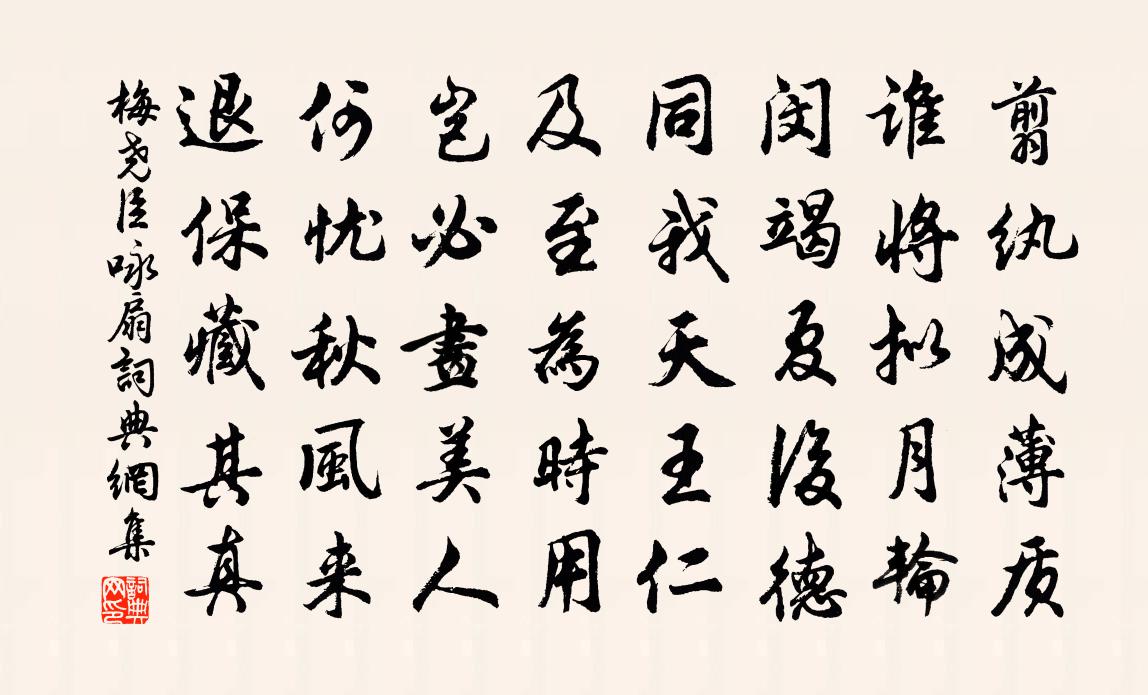 剪纨成薄质
谁将拟月轮
闵竭夏後德
同我天王仁
及至為時用
岂必畫美人
何忧秋風来
退保藏其真
梅尧臣咏扇詞典網集
詞典網印